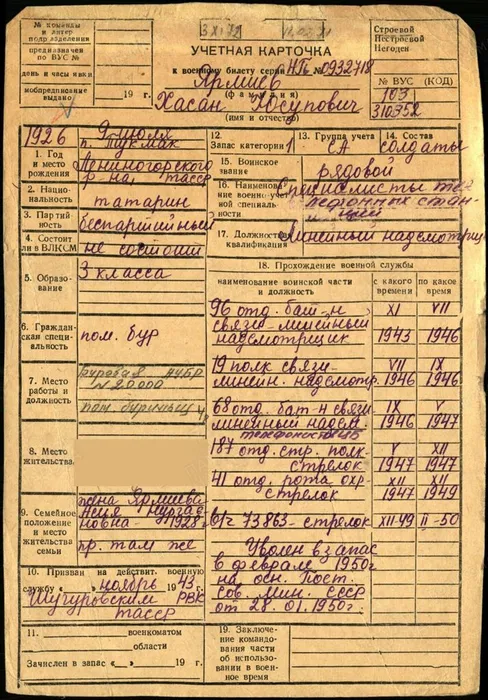 № команды
и литер
подразделения
предназначен
по ВУС №
день и часы явки
мобпредписание
выдано
19 г.
3 XI 72
УЧЕТНАЯ КАРТОЧКА
к военному билету серии НГб № 0932718
Ярмиев
(фамилия)
Хасан Юсупович
(имя и отчество)
Строевой
Нестроевой
Негоден
№ ВУС (КОД)
103
310352
1. Год
и место
рождения
1926 9 июля
п. Тукмак
Лениногорского
р-на, ТАССР
2. Нацио-
нальность
татарин
3. Пар тий-
ность
беспартийный
4. Состоит
ли в ВЛКСМ
не состоит
5. Образо-
вание
3 класса
6. Граждан-
ская специ-
альность
пом. бур
7. Место
работы и
должность
Буровая НУБР
№ 20.000
пом. бурильщ
8. Место
жительства
9. Семейное
положение
и место
жительства
семьи
жена Ярмиева
новна - 1928 г.
пр. там же
10. Призван на действит. военную
службу « » ноябрь 1943 г.
Шугуровским РВК
ТАССР
11. военкоматом
области
Зачислен в запас « » 19 г.
12.
Запас категории 1
13. Группа учета
СА
14. Состав
солдаты
15. Воинское
звание
рядовой
16. Наименова-
ние военно-учет-
ной специаль-
ности
Специалисты те-
лефонных стан-
ций
17. Должностная
квалификация
Линейный надсмотрщик
18. Прохождение военной службы
наименование воинской части
и должность
с какого
времени
по какое
время
96 отд. бат-н
связи-линейный
надсмотрщик
XI
1943
VII
1946
19 полк связи-
линейн. надсмотр.
VII
1946
IX
1946
68 отд. бат-н связи
линейный надсм.
IX
1946
V
1947
187 отд. стр. полк-
стрелок
V
1947
XII
1947
41 отд. рота охр-
стрелок
XII
1947
XII
1949
в/ч 73863-стрелок
XII-49
II-50
Уволен в запас
в феврале 1950 г
на осн. Пост.
Сов. Мин. СССР
от 28.01.1950 г.
19. Заключение
командования
части об
использовании
в военное
время